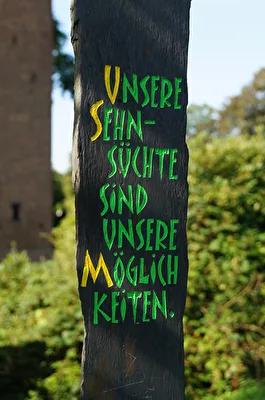 Unsere
Sehn-
süchte
sind
unsere
Möglich
keiten.